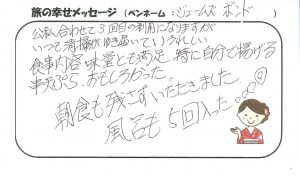 旅の幸せメッセージ (ペンネーム:ジェームズ ボンド)
公私合わせて3回目の利用になりますが
いつも清掃がゆき届いていてうれしい
食事内容 味 量とも満足 特に自分で揚げる
天ぷら、おもしろかった。
朝食も残さずいただきました
風呂も5回入った。